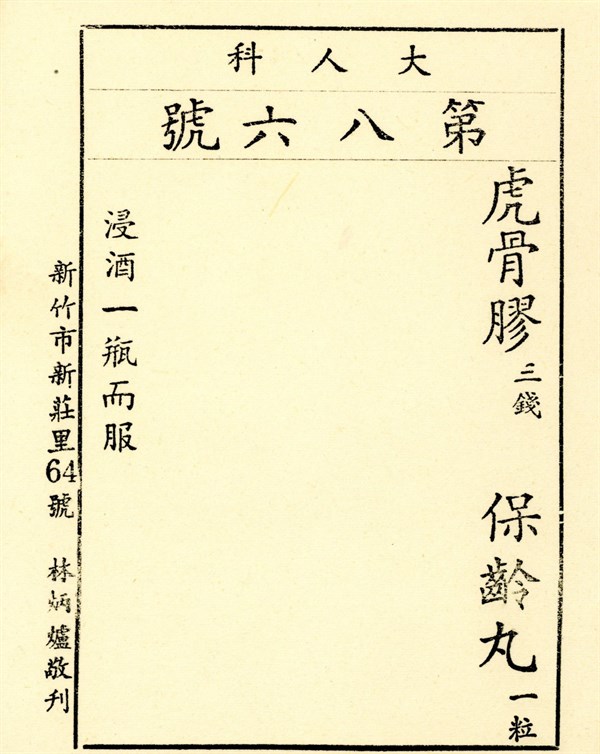 大人科
第八六號
虎骨膠三錢 保齡丸一粒
浸酒一瓶而服
新竹市新莊里64號 林炳爐敬刊